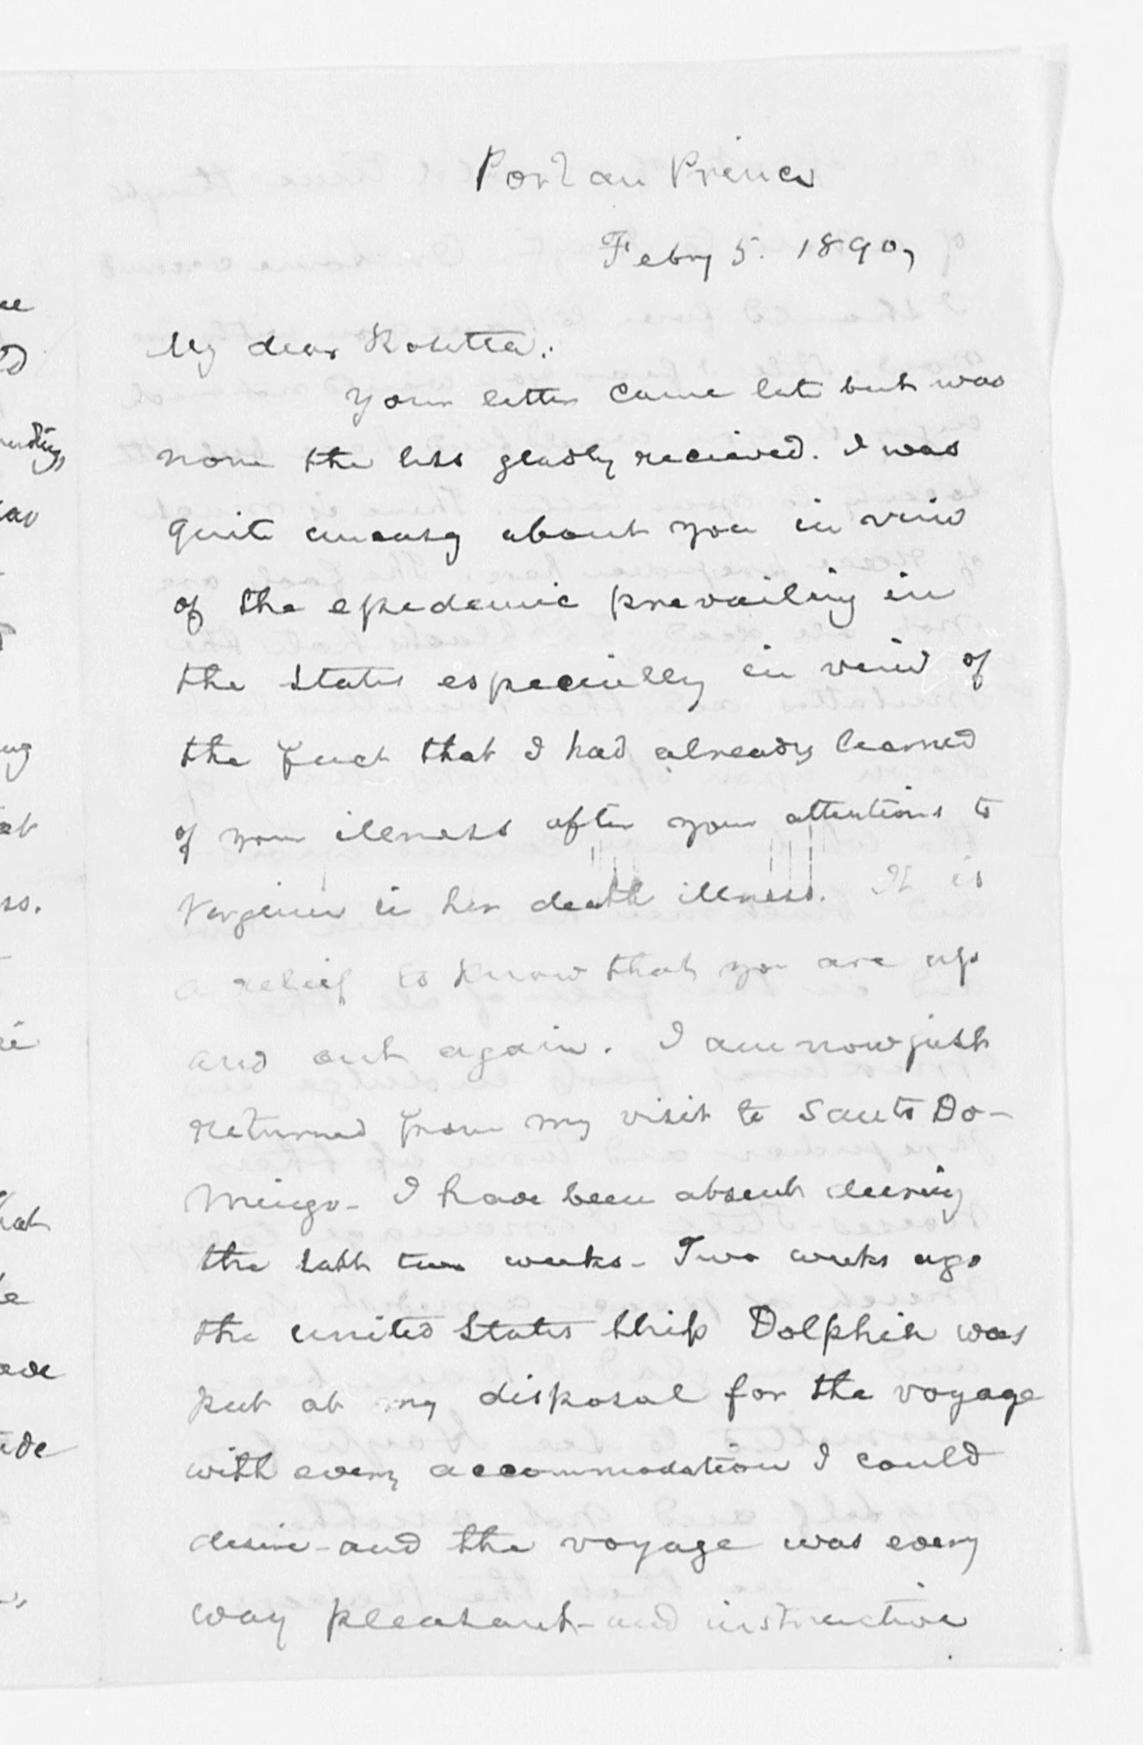 Port au Prince
Febry 5. 1890,
My dear Rosetta:
Your letter came late but was
none the less gladly recieved. I was
quite uneasy about you in view
of the epedemic prevailing in
the States especially in view of
the fact that I had already learned
of your illness after your attentions to
Virginia in her death illness. It is
a relief to know that you are up
and out again. I am now just
returned from my visit to Santo Do-
mingo - I have been absent during
the last two weeks - Two weeks ago
the United States Ship Dolphin was
put at my disposal for the voyage
with every accommodation I could
desire - and the voyage was every
way pleasant - and instructive